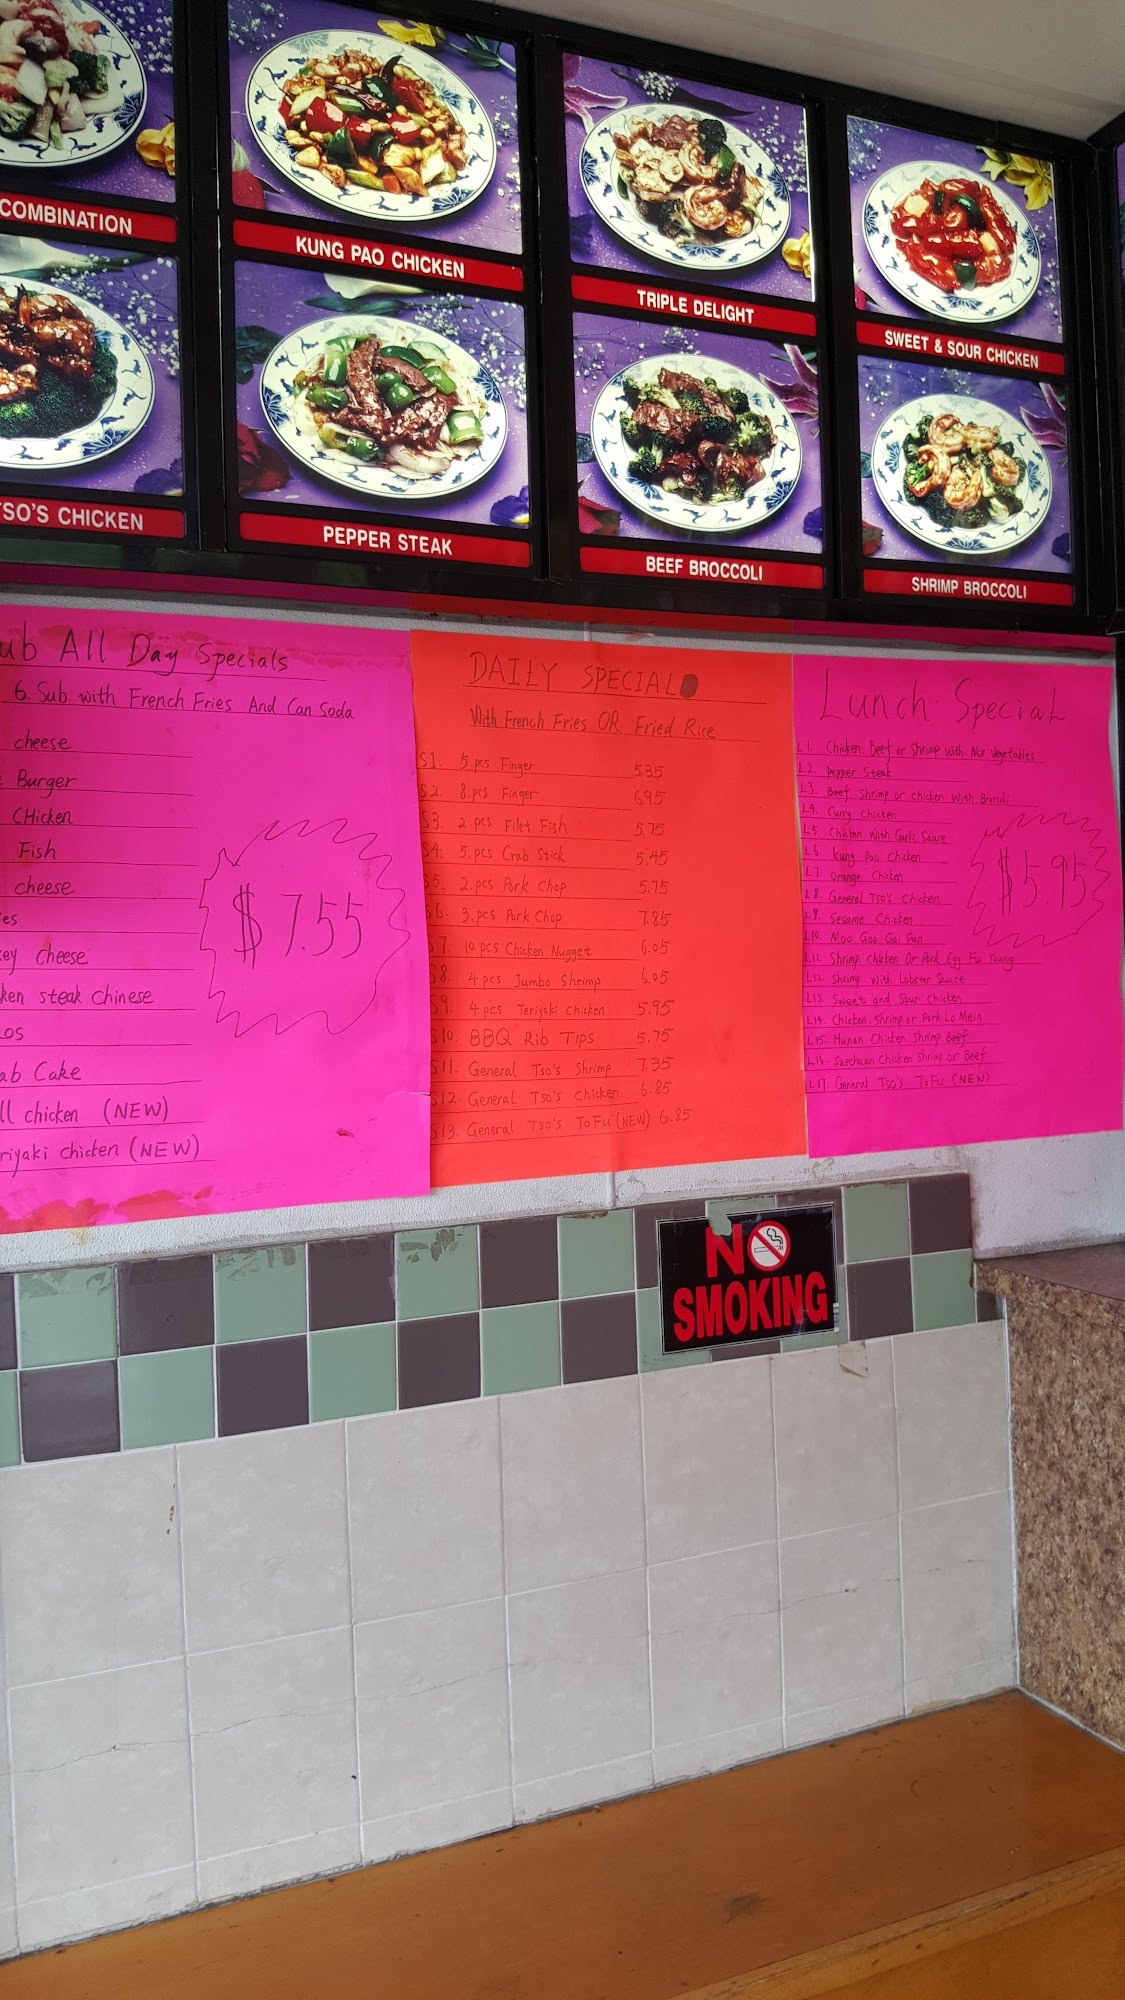 COMBINATION
KUNG PAO CHICKEN
TRIPLE DELIGHT
SWEET & SOUR CHICKEN
TSO'S CHICKEN
PEPPER STEAK
BEEF BROCCOLI
SHRIMP BROCCOLI
ub All Day Specials
6. Sub with French Fries And Can Soda
cheese
Burger
CHicken
Fish
cheese
ies
key cheese
ken steak Chinese
os
ab Cake
ll chicken (NEW)
riyaki chicken (NEW)
$7.55
DAILY SPECIAL
With French Fries OR Fried Rice
S1. 5 pcs Finger 5.35
S2. 8.pcs Finger 6.95
S3. 2.pcs Filet Fish 5.75
S4. 5.pcs Crab Stick 5.45
S5. 2.pcs Pork Chop 5.75
S6. 3.pcs Pork Chop 7.85
S7. 10.pcs Chicken Nugget 6.05
S8. 4.pcs Jumbo Shrimp 6.05
S9. 4.pcs Teriyaki Chicken 5.95
S10. BBQ Rib Tips 5.75
S11. General Tso's Shrimp 7.35
S12. General Tso's Chicken 6.85
S13. General Tso's ToFu (NEW) 6.85
Lunch Special
L1. Chicken. Beef or Shrimp With Mix Vegetables
L2. pepper Steak
L3. Beef Shrimp or Chicken With Brocoli
L4. Curry Chicken
L5. Chicken With Garlic Sauce
L6. Kung Pao Chicken
L7. Orange Chicken
L8. General Tso's Chicken
L9. Sesame Chicken
L10. Moo Goo Gai Pan
L11. Shrimp Chicken Or Pork Egg Foo Young
L12. Shrimp With Lobster Sauce
L13. Sweet and Sour Chicken
L14. Chicken. Shrimp or Pork Lo Mein
L15. Hunan Chicken. Shrimp Beef
L16. Szechuan Chicken Shrimp or Beef
L17. General Tso's ToFu (NEW)
$5.95
NO
SMOKING